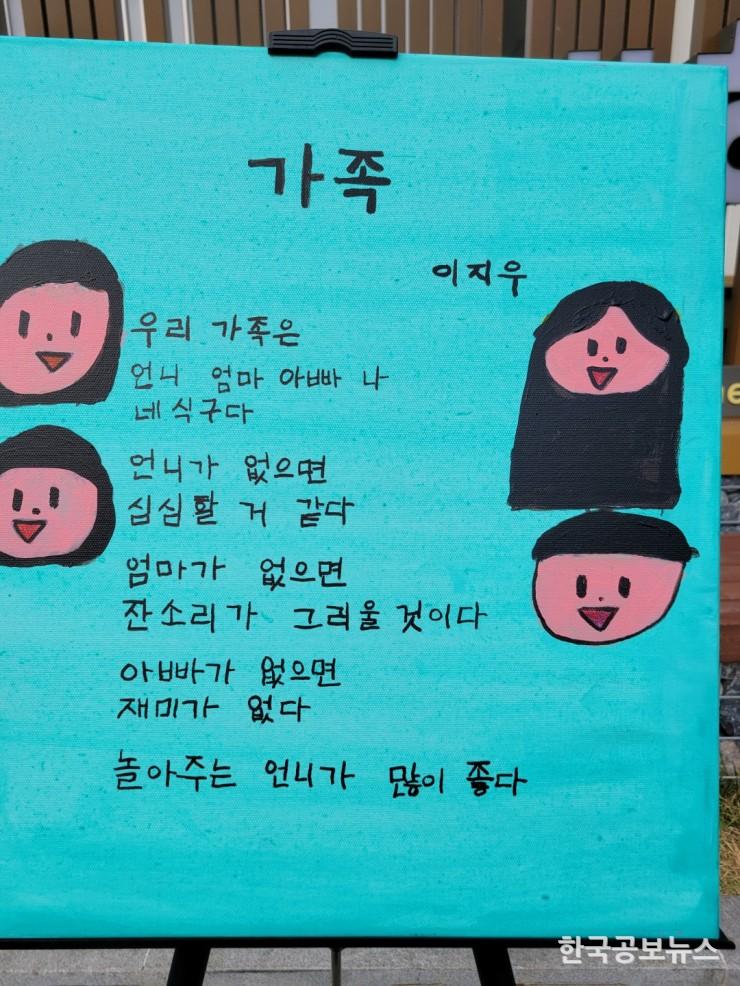 가족
이지우
우리 가족은
언니 엄마 아빠 나
네식구다
언니가 없으면
심심할 거 같다
엄마가 없으면
잔소리가 그리울것이다
아빠가 없으면
재미가 없다
놀아주는 언니가 많이 좋다
한국공보뉴스